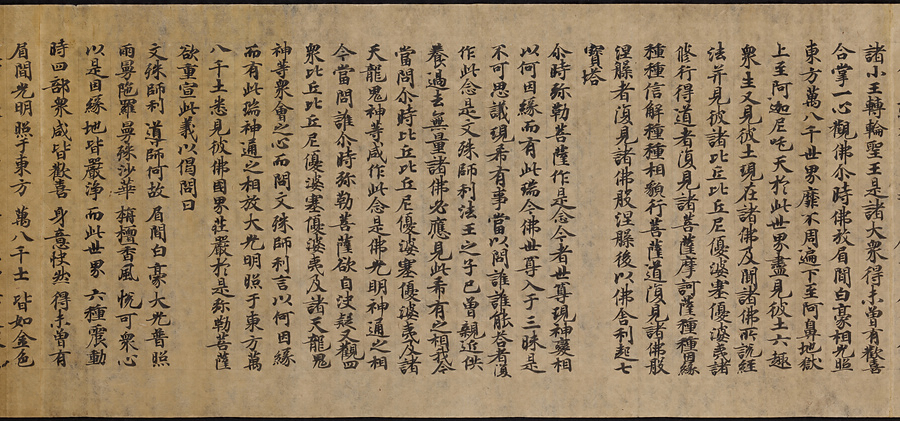 諸小王轉輪聖王是諸大衆得未曾有歡喜
合掌一心觀佛尒時佛放眉間白豪相光照
東方萬八千世界靡不周遍下至阿鼻地獄
上至阿迦尼吒天於此世界盡見彼土六趣
衆生又見彼土現在諸佛及聞諸佛所說經
法并見彼諸比丘比丘尼優婆塞優婆夷諸
修行得道者復見諸菩薩摩訶薩種種因緣
種種信解種種相貌行菩薩道復見諸佛般
涅槃者復見諸佛般涅槃後以佛舍利起七
寶塔
尒時弥勒菩薩作是念今者世尊現神變相
以何因緣而有此瑞今佛世尊入于三昧是
不可思議現希有事當以問誰誰能答者復
作此念是文殊師利法王之子已曾親近供
養過去無量諸佛必應見此希有之相我今
當問尒時比丘比丘尼優婆塞優婆夷及諸
天龍鬼神等咸作此念是佛光明神通之相
今當問誰尒時弥勒菩薩欲自決疑又觀四
衆比丘比丘尼優婆塞優婆夷及諸天龍鬼
神等衆會之心而問文殊師利言以何因緣
而有此瑞神通之相放大光明照于東方萬
八千土悉見彼佛國界莊嚴於是弥勒菩薩
欲重宣此義以偈問曰
文殊師利 導師何故 眉間白豪 大光普照
雨曼陀羅 曼殊沙華 栴檀香風 悅可衆心
以是因緣 地皆嚴淨 而此世界 六種震動
時四部衆 咸皆歡喜 身意快然 得未曾有
眉間光明 照于東方 萬八千土 皆如金色